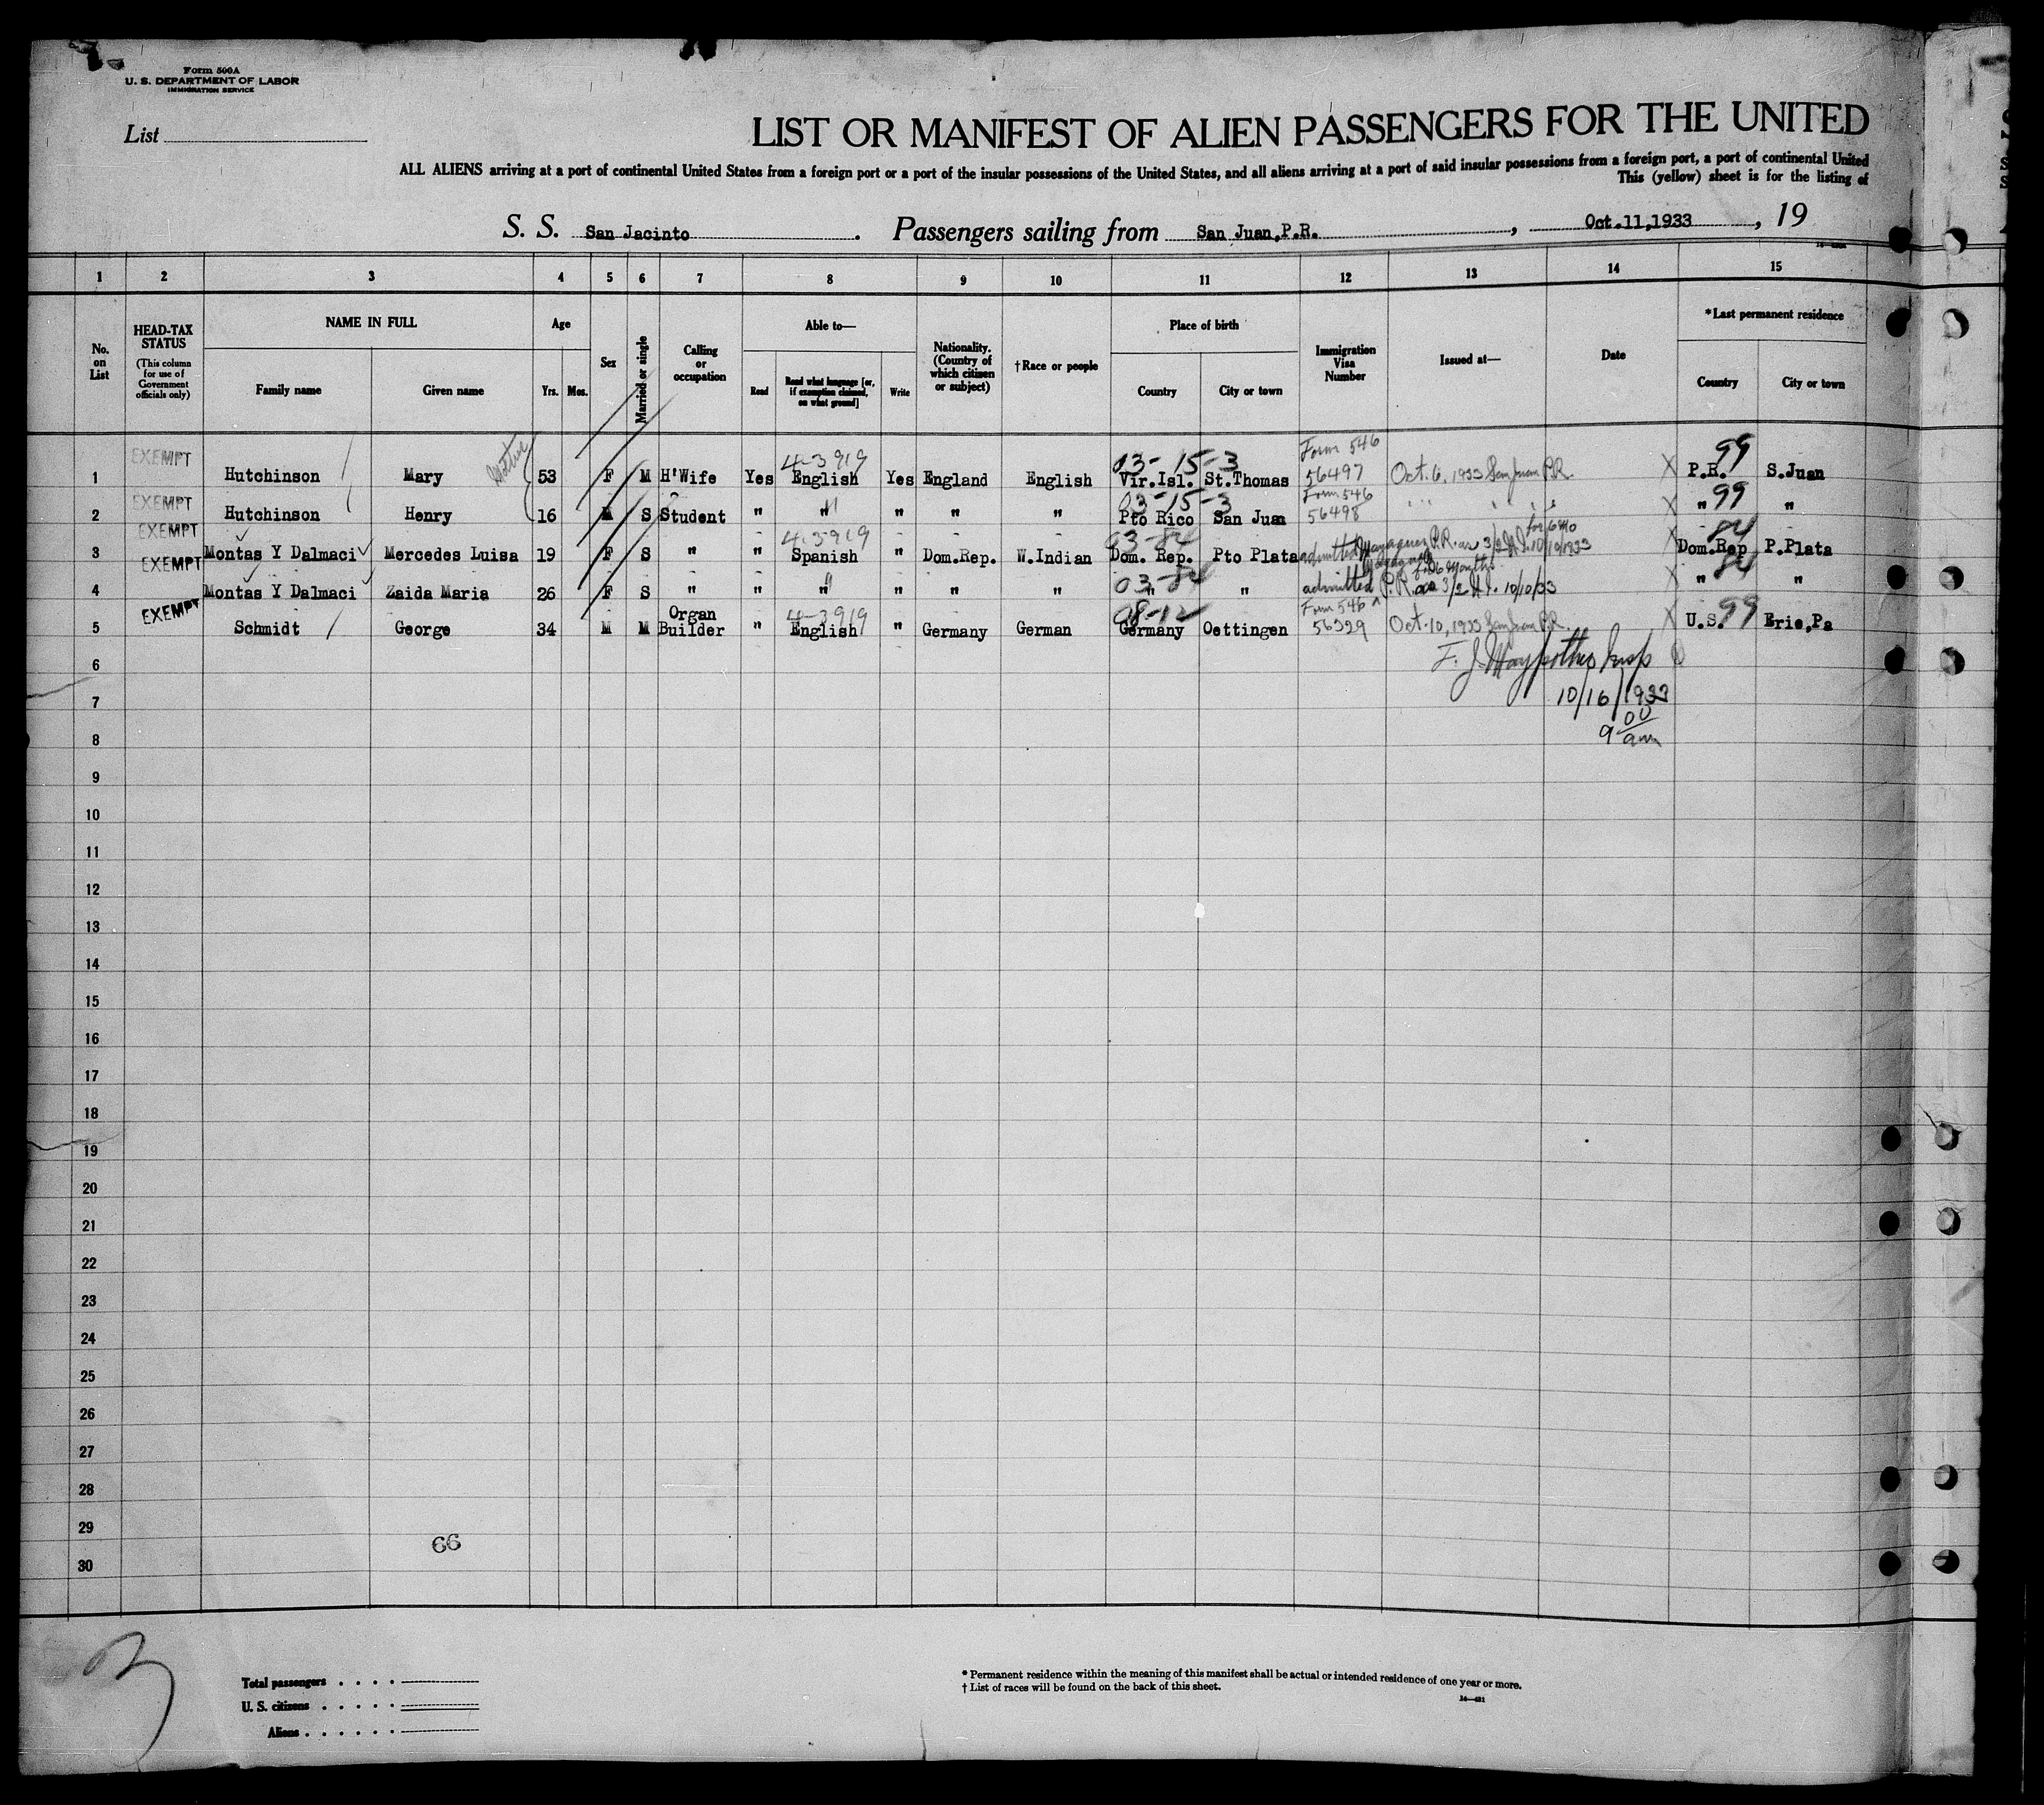 Form 500A
U. S. DEPARTMENT OF LABOR
IMMIGRATION SERVICE
List
LIST OR MANIFEST OF ALIEN PASSENGERS FOR THE UNITED
ALL ALIENS arriving at a port of continental United States from a foreign port or a port of the insular possessions of the United States, and all aliens arriving at a port of said insular possessions from a foreign port, a port of continental United
This (yellow) sheet is for the listing of
S. S. San Jacinto. Passengers sailing from San Juan,P.R., Oct.11,1933, 19
1 2 3 4 5 6 7 8 9 10 11 12 13 14 15
No. on List
HEAD-TAX STATUS
(This column for use of Government officials only)
NAME IN FULL
Family name Given name
Age
Yrs. Mos.
Sex
Married or single
Calling or occupation
Able to—
Read Read what language [or, if exemption claimed, on what ground] Write
Nationality. (Country of which citizen or subject)
†Race or people
Place of birth
Country City or town
Immigration Visa Number
Issued at—
Date
*Last permanent residence
Country City or town
EXEMPT 4-3919 03-15-3 Form 546 99
1 Hutchinson Mary Mother 53 F M H'Wife Yes English Yes England English Vir.Isl. St.Thomas 56497 Oct. 6, 1933 San Juan P.R. X P.R. S.Juan
EXEMPT 03-15-3 Form 546 99
2 Hutchinson Henry 16 M S Student " " " " " Pto Rico San Juan 56498 " " " " X " "
EXEMPT 4-3919 03-84 for 6 mo 84
3 Montas Y Dalmaci Mercedes Luisa 19 F S " " Spanish " Dom.Rep. W.Indian Dom. Rep. Pto Plata admitted P.R. 3/2 10/10/1933 X Dom.Rep P.Plata
EXEMPT 03-84 6 months 84
4 Montas Y Dalmaci Zaida Maria 26 F S " " " " " " " " admitted P.R. 3/2 10/10/33 X " "
EXEMPT 4-3919 08-12 Form 546 99
5 Schmidt George 34 M M Organ Builder " English " Germany German Germany Oettingen 56329 Oct. 10, 1933 San Juan P.R. X U.S. Erie,Pa
6 F. J. Insp
7 10/16/1933
8 9 00 am
9
10
11
12
13
14
15
16
17
18
19
20
21
22
23
24
25
26
27
28
29
66
30
Total passengers
U. S. citizens
Aliens
* Permanent residence within the meaning of this manifest shall be actual or intended residence of one year or more.
† List of races will be found on the back of this sheet.